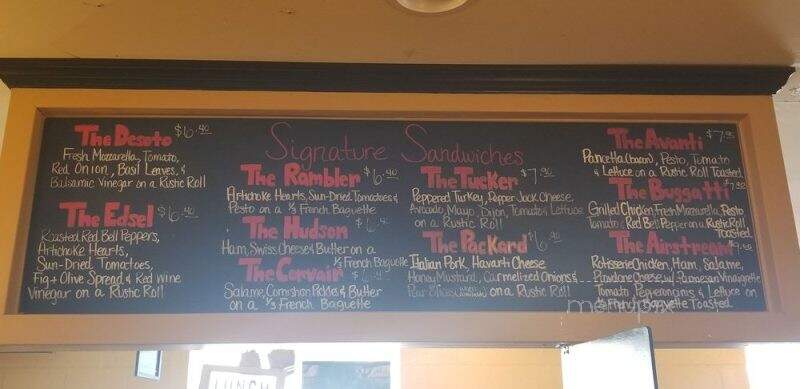 Signature Sandwiches
The Desoto $6.40
Fresh Mozzarella, Tomato,
Red Onion, Basil Leaves, &
Balsamic Vinegar on a Rustic Roll
The Edsel $6.40
Roasted Red Bell Peppers,
Artichoke Hearts,
Sun-Dried Tomatoes,
Fig + Olive Spread & Red Wine
Vinegar on a Rustic Roll
The Rambler $6.40
Artichoke Hearts, Sun-Dried Tomatoes &
Pesto on a 1/3 French Baguette
The Hudson $6.40
Ham, Swiss Cheese & Butter on a
1/3 French Baguette
The Corvair $6.40
Salame, Cornishon Pickles & Butter
on a 1/3 French Baguette
The Tucker $7.90
Peppered Turkey, Pepper Jack Cheese,
Avocado, Mayo, Dijon, Tomato & Lettuce
on a Rustic Roll
The Packard $6.90
Italian Pork, Havarti Cheese
Honey Mustard, Carmelized Onions &
on a Rustic Roll
The Avanti $7.90
Pancetta (bacon), Pesto, Tomato
& Lettuce on a Rustic Roll Toasted
The Buggatti 7.90
Grilled Chicken, Fresh Mozzarella, Pesto
Tomato & Red Bell Pepper on a Rustic Roll
Toasted
The Airstream
Rotisserie Chicken, Ham, Salame,
Provolone Cheese w/ Parmesan Vinaigrette
Tomato, Pepperoncinis & Lettuce on
1/3 French Baguette Toasted
menupix
LUNCH